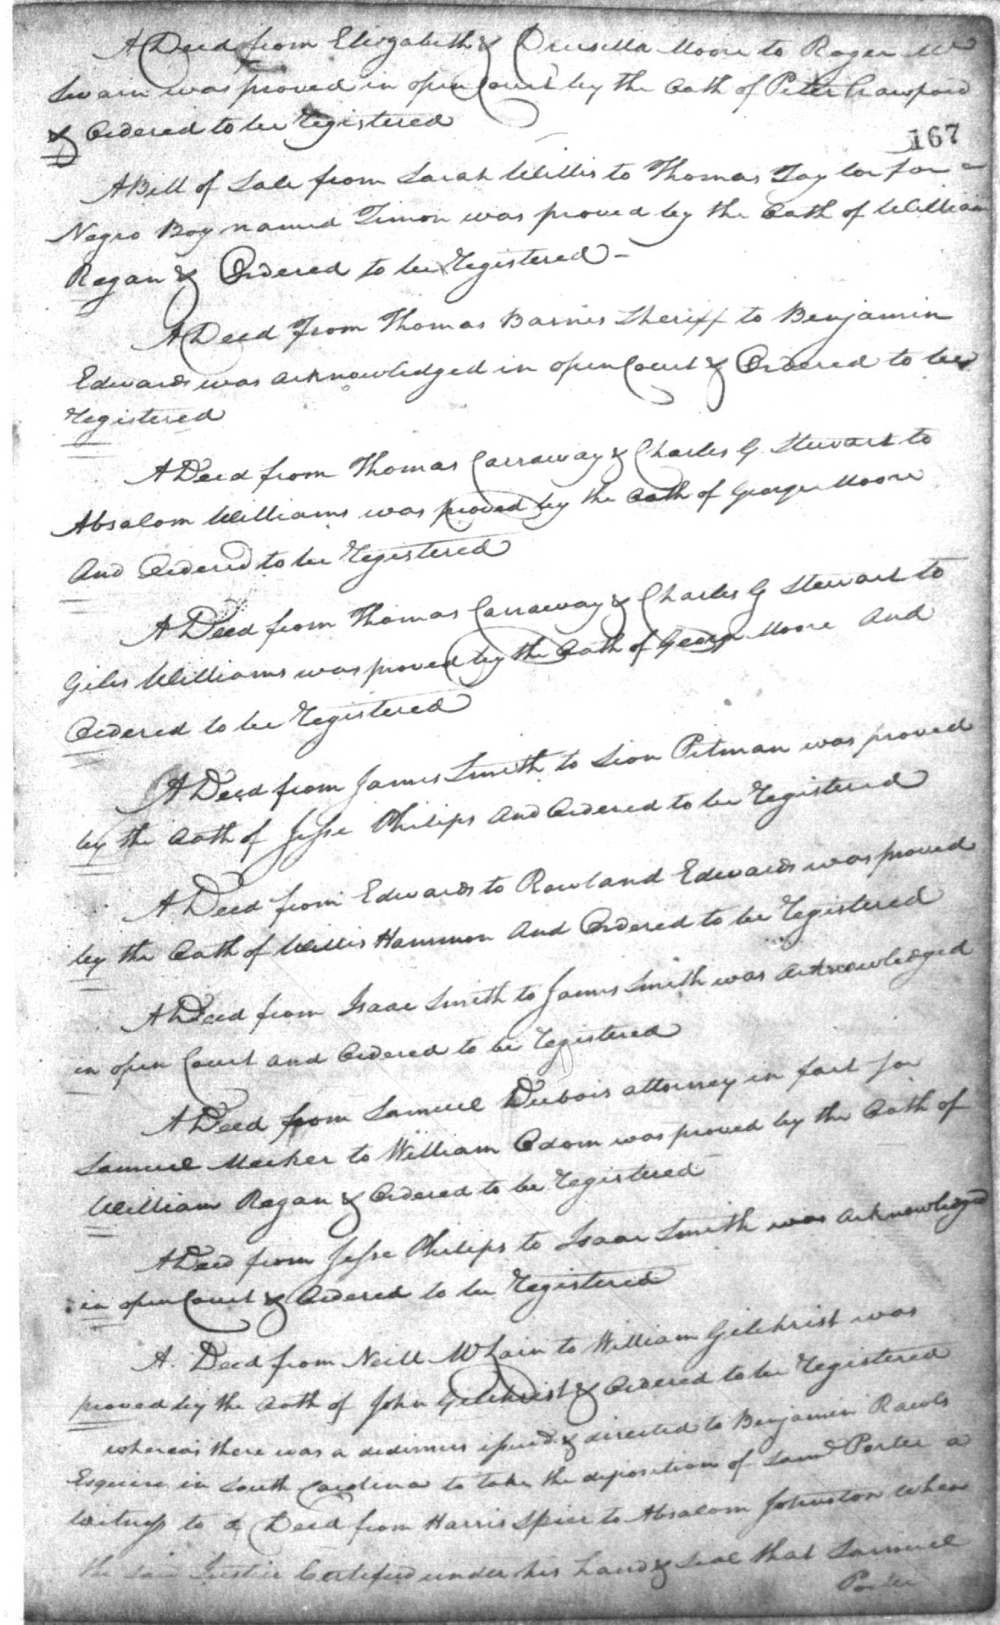 A Deed from Elizabeth & Drusilla Moore to Roger Mc
Swain was proved in open Court by the Oath of Peter Crawford
& Ordered to be Registered
167
A Bill of Sale from Sarah Willis to Thomas Taylor for a
Negro Boy named Timon was proved by the Oath of William
Regan & Ordered to be Registered
A Deed from Thomas Barnes Sheriff to Benjamin
Edwards was acknowledged in open Court & Ordered to be
Registered
A Deed from Thomas Carraway & Charles G. Stewart to
Absalom Williams was proved by the Oath of George Moore
And Ordered to be Registered
A Deed from Thomas Carraway & Charles G Stewart to
Giles Williams was proved by the Oath of George Moore And
Ordered to be Registered
A Deed from James Smith to Lion Pitman was proved
by the Oath of Jesse Philips And Ordered to be Registered
A Deed from Edwards to Rowland Edwards was proved
by the Oath of Willis Hammon And Ordered to be Registered
A Deed from Isaac Smith to James Smith was acknowledged
in open Court and Ordered to be Registered
A Deed from Samuel Dubois attorney in fact for
Samuel Marker to William Odom was proved by the Oath of
William Regan & Ordered to be Registered
A Deed from Jesse Philips to Isaac Smith was acknowledged
in open Court & Ordered to be Registered
A Deed from Neill McLain to William Gilchrist was
proved by the Oath of John Gilchrist & Ordered to be Registered
whereas there was a dedimus issued & directed to Benjamin Rawls
Esquire in South Carolina to take the deposition of Saml Porter a
Witness to a Deed from Harris Spier to Absalom Johnston when
the said Justice Certified under his hand & Seal that Samuel
Porter